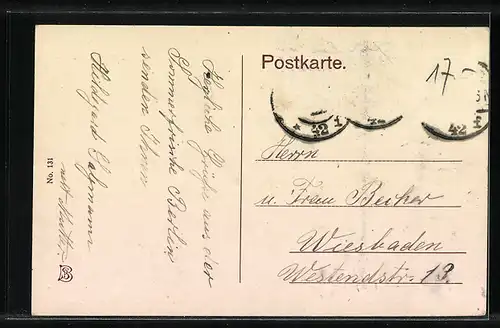 Postkarte.
17
42 1
42
42
Herrn
u. Frau Becker
Wiesbaden
Westendstr. 13.
Herzliche Grüße aus der
Sommerfrische Berlin
senden Ihnen
Hildegard
nebst Mutter
No. 131